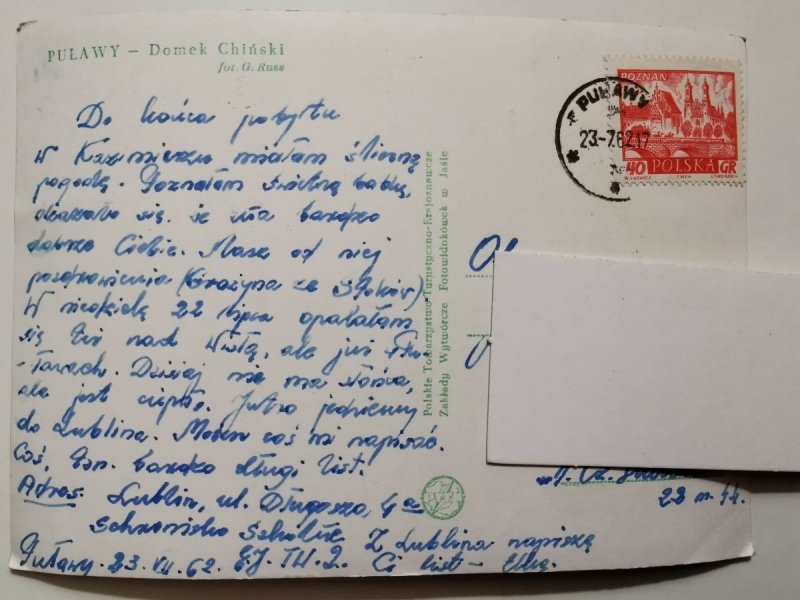 PUŁAWY — Domek Chiński
fot. G. Russ
Do końca pobytu
W Kazimierzu miałam śliczną
pogodę. Poznałam świetną babkę,
okazało się, że zna bardzo
dobrze Ciebie. Masz od niej
pozdrowienia (Grażyna ze
W niedzielę 22 lipca opalałam
się też nad Wisłą, ale już w Pu-
-ławach. Dzisiaj nie ma słońca,
ale jest ciepło. Jutro jedziemy
do Lublina. Możesz coś mi napisać.
Coś, tzn. bardzo długi list.
Adres: Lublin, ul. Długosza, 4a
Schronisko Szkolne Z Lublina napiszę
Puławy. 23. VII. 62. Ci list — Elka.
Polskie Towarzystwo Turystyczno-Krajoznawcze
Zakłady Wytwórcze Fotowidokówek w Jaśle
PUŁAWY
23.-7.62.17
POZNAŃ
40 POLSKA GR
22 m. 44.